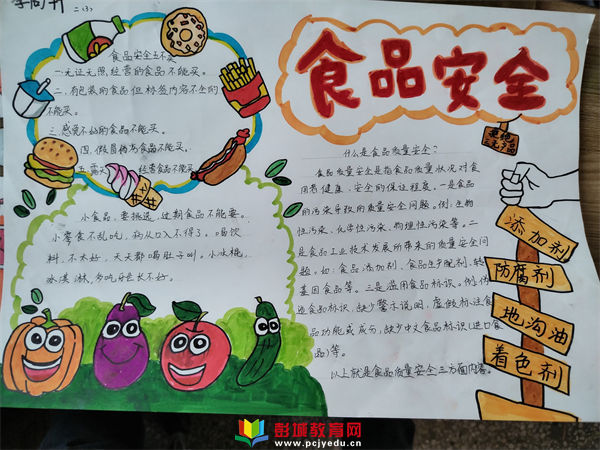 二(3)
食品安全五不买
一.无证无照经营的食品不能买。
二.有包装的食品但标签内容不全的
不能买。
三.感觉不好的食品不能买。
四.假冒伪劣食品不能买。
五.露天
经营食品不能买
小食品,要挑选,过期食品不能要。
小零食不乱吃,病从口入不得了。喝饮
料,不太好,天天都喝肚子叫。小冰棍,
冰淇淋,多吃
长不好。
食品安全
拒绝
什么是食品质量安全?
食品质量安全是指食品质量状况对食
用者健康、安全的保证程度。一是食品
的污染导致的质量安全问题。例:生物
性污染、化学性污染、物理性污染等。二
是食品工业技术发展所带来的质量安全问
题。如:食品添加剂、食品生产配剂、转
基因食品等。三是滥用食品标识。例:伪
造食品标识,缺少警示说明,虚假标注食
品功能或成分,缺少中文食品标识(进口食
品)等。
以上就是食品质量安全三方面内容。
添加剂
防腐剂
地沟油
着色剂
彭城教育网
www.pcjyedu.cn